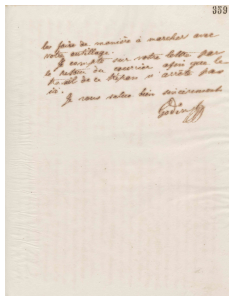 359
les faire de manière à marcher avec
votre outillage.
Je compte sur votre lettre par
le retour du courrier afin que le
travail de ce Dépan n'arrête pas
ici.
Je vous salue bien sincèrement
Godin